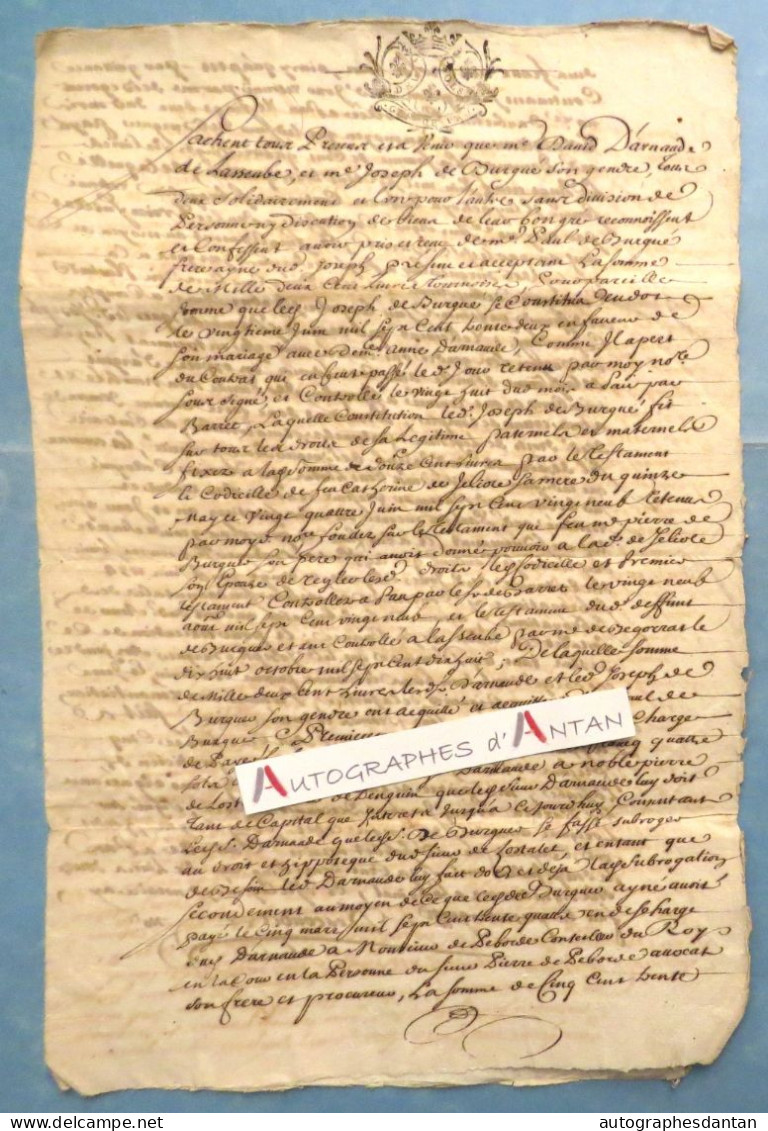 Sachent tous Presens et a Venir que me. David D'arnaude
de Lasseube, et me. Joseph de Burgué son gendre, tous
deux Solidairement et l'un pour l'autre sans division de
Personne ny discution de biens de leur bon gré reconnoissent
et Confessent avoir pris et reçu de me. Paul de Burgué
frere ayné dud. Joseph present et acceptant La Somme
de Mille deux Cens livres tournoises, Pour pareille
somme que led. Joseph de Burgué se Constitua en dot
le vingtieme Juin mil sept Cent trente deux en faveur de
son mariage avec dem.lle Anne Darnaude, Comme Il apert
du Contrat que en fut passé le d. Jour retenu par moy no.re
sous signé, et Controllé le vingt huit dud. mois a Pau par
Barret, Laquelle Constitution led. Joseph de Burgué fit
sur tous les droits de sa Legitime paternels et maternels
fixez a la Somme de douze Cens livres par le testament
et Codicille de feu Catherine de Jeliote sa mere du quinze
May et vingt quattre Juin mil sept Cens vingt neuf retenus
par moyd. no.re fondez sur le testament qui feu me. pierre de
Burgué son pere qui avoit donné pouvoir a lad. de Jeliote
son Epouse de regler lesd. droits lesd. Codicille et Premier
testament Controllés a Pau par le sr. de Barret le vingt neuf
aout mil sept Cens vingt neuf et le testament dud. deffunt
de Burgué est Controllé a Lasseube par me. de Begorrat le
dix huit octobre mil sept Cent dix huit; De laquelle Somme
de Mille deux Cent livres Lesds. Darnaude et led. Joseph de
Burgué son gendre ont acquitté et acquittent Paul de
Burgué. Premierement Charge
de Paye
AUTOGRAPHES d'ANTAN
cinq quattre
Darnaude a noble pierre
de Lost de Denguin que led. sieur Darnaude luy doit
tant de Capital que Interets Jusqu'a Ce Jourd'huy, Consentant
Led. s. Darnaude que led. s. de Burgué se fasse subroger
au droit et hippoteque dud. sieur de Lostalet, et entant que
de besoin led. Darnaude luy fait do et deja lad. subrogation
secondement au moyen de Ce que led. de Burgué ayné avoit
payé le Cinq mars mil sept Cent trente quattre en descharge
dud. Darnaude a Monsieur de Peborde Conseiller du Roy
en la Cour en la Personne du sieur Pierre de Peborde avocat
son frere et procureur, La somme de Cinq Cent trente
autographesdantan